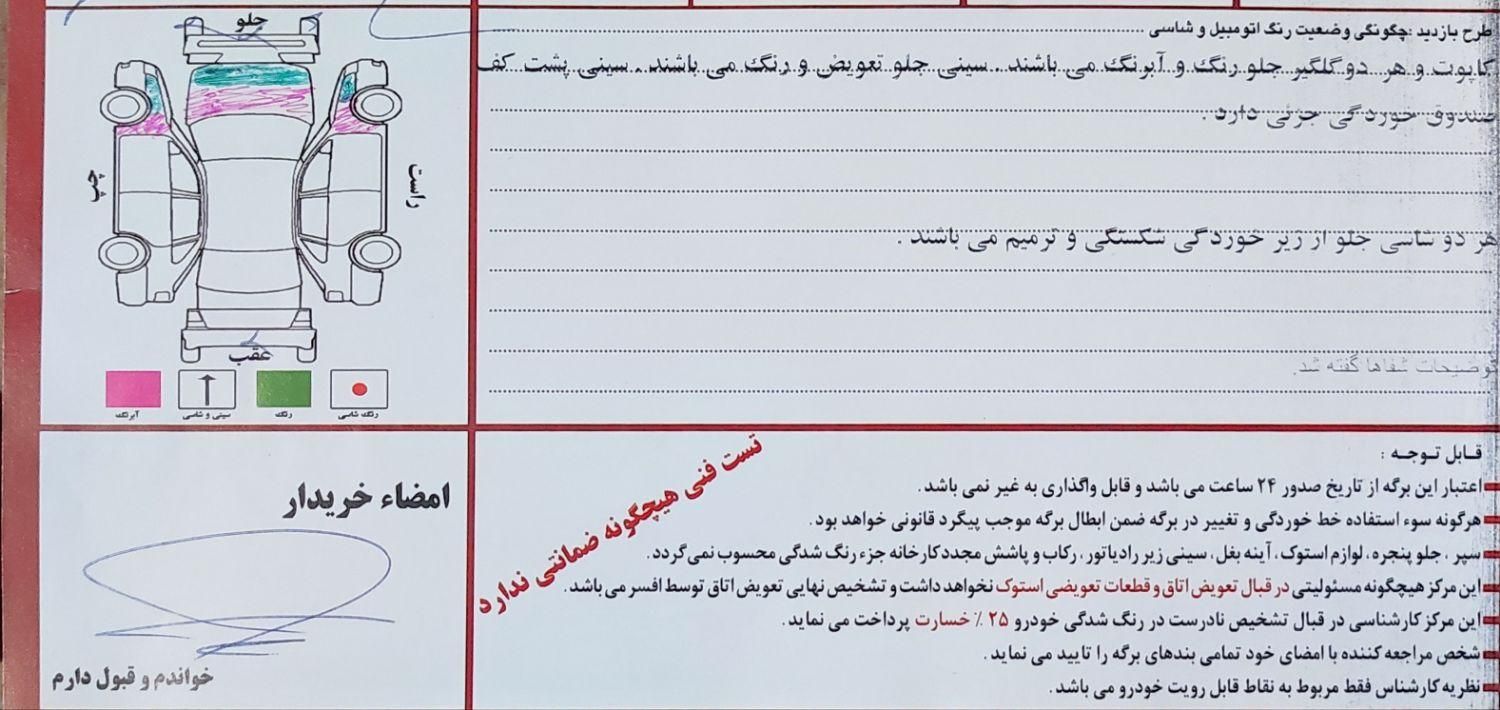 طرح بازدید :چگونگی وضعیت رنگ اتومبیل و شاسی
کاپوت و هر دو گلگیر جلو رنگ و آبرنگ می باشند . سینی جلو تعویض و رنگ می باشند . سینی پشت کف
صندوق خوردگی جزئی دارد .
هر دو شاسی جلو از زیر خوردگی شکستگی و ترمیم می باشند .
توضیحات شفاها گفته شد.
جلو
راست
چپ
عقب
رنگ شاسی
رنگ
سینی و شاسی
آبرنگ
قابل توجه :
اعتبار این برگه از تاریخ صدور ۲۴ ساعت می باشد و قابل واگذاری به غیر نمی باشد .
هرگونه سوء استفاده خط خوردگی و تغییر در برگه ضمن ابطال برگه موجب پیگرد قانونی خواهد بود .
سپر ، جلو پنجره ، لوازم استوک ، آینه بغل ، سینی زیر رادیاتور ، رکاب و پاشش مجدد کارخانه جزء رنگ شدگی محسوب نمی گردد .
این مرکز هیچگونه مسئولیتی در قبال تعویض اتاق و قطعات تعویضی استوک نخواهد داشت و تشخیص نهایی تعویض اتاق توسط افسر می باشد .
این مرکز کارشناسی در قبال تشخیص نادرست در رنگ شدگی خودرو ۲۵ ٪ خسارت پرداخت می نماید .
شخص مراجعه کننده با امضای خود تمامی بندهای برگه را تایید می نماید .
نظریه کارشناس فقط مربوط به نقاط قابل رویت خودرو می باشد .
تست فنی هیچگونه ضمانتی ندارد
امضاء خریدار
خواندم و قبول دارم